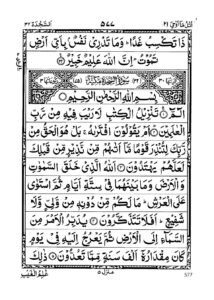 السجدة ٣٢
اتل ما اوحى ٢١
ذَا تَكْسِبُ غَدًا ؕ وَمَا تَدْرِىْ نَفْسٌۢ بِاَىِّ اَرْضٍ
تَمُوْتُ ؕ اِنَّ اللّٰهَ عَلِيْمٌ خَبِيْرٌ
بِسْمِ اللّٰهِ الرَّحْمٰنِ الرَّحِيْمِ
الٓمّٓ ۚ تَنْزِيْلُ الْكِتٰبِ لَا رَيْبَ فِيْهِ مِنْ رَّبِّ
الْعٰلَمِيْنَ ؕ اَمْ يَقُوْلُوْنَ افْتَرٰىهُ ۚ بَلْ هُوَ الْحَقُّ مِنْ
رَّبِّكَ لِتُنْذِرَ قَوْمًا مَّاۤ اَتٰىهُمْ مِّنْ نَّذِيْرٍ مِّنْ قَبْلِكَ
لَعَلَّهُمْ يَهْتَدُوْنَ اَللّٰهُ الَّذِىْ خَلَقَ السَّمٰوٰتِ
وَالْاَرْضَ وَمَا بَيْنَهُمَا فِىْ سِتَّةِ اَيَّامٍ ثُمَّ اسْتَوٰى
عَلَى الْعَرْشِ ؕ مَا لَكُمْ مِّنْ دُوْنِهٖ مِنْ وَّلِىٍّ وَّلَا
شَفِيْعٍ ؕ اَفَلَا تَتَذَكَّرُوْنَ يُدَبِّرُ الْاَمْرَ مِنَ
السَّمَآءِ اِلَى الْاَرْضِ ثُمَّ يَعْرُجُ اِلَيْهِ فِىْ يَوْمٍ
كَانَ مِقْدَارُهٗۤ اَلْفَ سَنَةٍ مِّمَّا تَعُدُّوْنَ ذٰلِكَ
منزل ۵
عٰلِمُ الْغَيْبِ
577